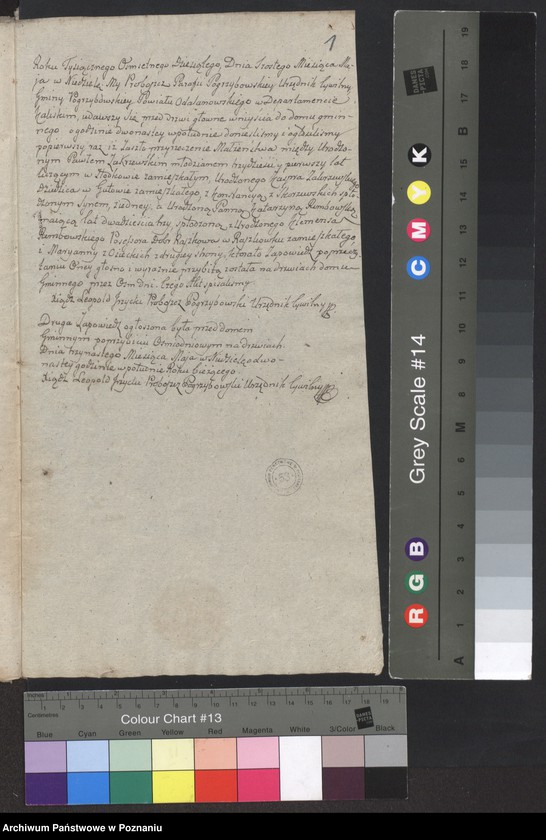 1
Roku Tysiącznego Ośmsetnego Dziesiątego, Dnia Szóstego Miesiąca Ma-
ja w Niedzielę My Proboszcz Parafii Pogrzybowskiey Urzędnik Cywilny
Gminy Pogrzybowskiey Powiatu Odalanowskiego w Departamencie
Kaliskim, udawszy się przed drzwi główne wniyścia do domu gmin-
nego o godzinie dwonastey w południe donieśliśmy i ogłosiliśmy
popierwszy raz iż zaszło przyrzeczenie Małżeństwa między Urodzo-
nym Pawłem Zakrzewskim młodzianem trzydzieści y pierwszy lat
liczącym w zamieszkałym, Urodzonego Zakrzewskiego
Dziedzica w zamieszkałego, z Konstancyą z Skarzewskich spło-
dzonym Synem, z iedney; a Urodzoną Panną Katarzyną Rembowską
maiącą lat dwadzieścia trzy spłodzoną z Urodzonego Klemensa
Rembowskiego Posessora Dóbr Raszkowa w Raszkowie zamieszkałego,
i Maryanny z Osieckich z drugiey strony, ktorato Zapowiedź po przeczy-
taniu Oney głośno i wyraźnie przybitą została na drzwiach domu
Gminnego przez Ośm dni. Czego Akt spisaliśmy
Xiądz Leopold Proboszcz Pogrzybowski Urzędnik Cywilny
Druga Zapowiedź ogłoszona była przed domem
Gminnym po przybiciu Ośmiodniowym na drzwiach
Dnia trzynastego Miesiąca Maja w Niedzielę o dwo-
nastey godzinie w południe Roku bieżącego.
Xiądz Leopold Proboszcz Pogrzybowski Urzędnik Cywilny
DANES
PICTA
.COM
Grey Scale #14
R G B C M Y K
A 1 2 3 4 5 6 M 8 9 10 11 12 13 14 15 B 17 18 19
Inches
1 2 3 4 5 6 7 8
Centimetres
1 2 3 4 5 6 7 8 9 10 11 12 13 14 15 16 17 18 19
Colour Chart #13
Blue Cyan Green Yellow Red Magenta White 3/Color Black
Archiwum Państwowe w Poznaniu